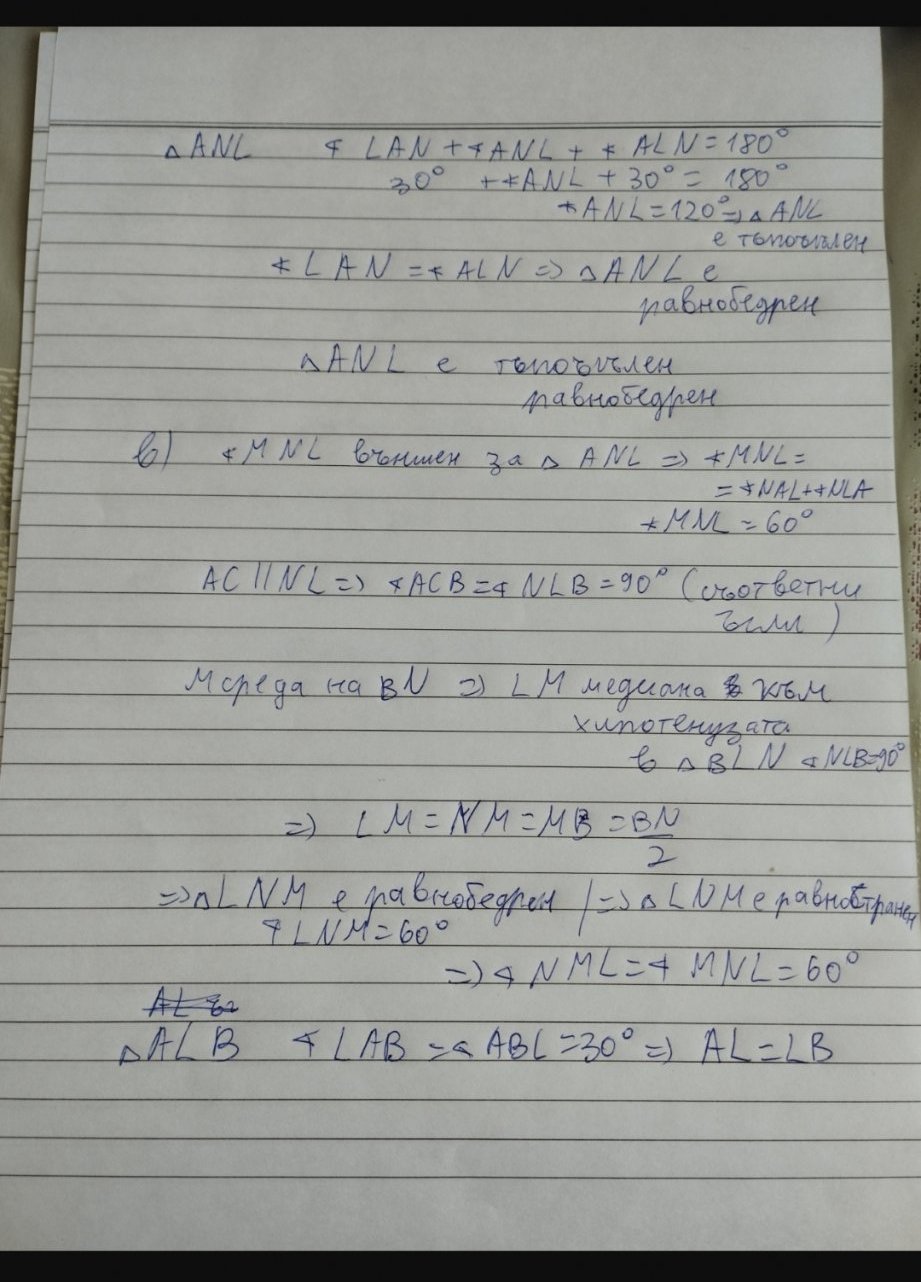 △ANL ∢ LAN + ∢ANL + ∢ ALN = 180°
30° + ∢ANL + 30° = 180°
∢ANL = 120° => △ ANL
е тъпоъгълен
∢LAN = ∢ALN => △ANL е
равнобедрен
△ANL е тъпоъгълен
равнобедрен
в) ∢MNL външен за △ ANL => ∢MNL =
= ∢NAL + ∢NLA
∢MNL = 60°
AC || NL => ∢ACB = ∢ NLB = 90° (съответни
ъгли)
M среда на BN => LM медиана към
хипотенузата
в △BLN ∢NLB=90°
=> LM = NM = MB = BN/2
=> △LNM е равнобедрен / => △LNM е равностранен
∢LNM = 60°
=> ∢ NML = ∢ MNL = 60°
△ALB ∢LAB = ∢ ABL = 30° => AL = LB